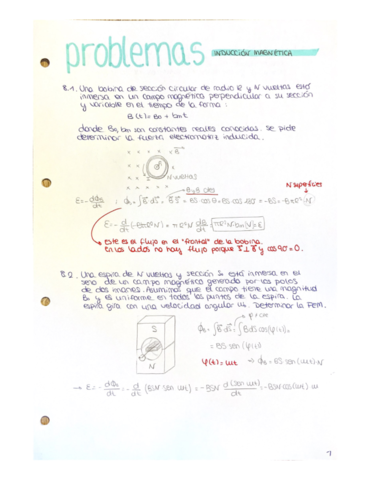 problemas INDUCCIÓN MAGNÉTICA
8.1. Una bobina de sección circular de radio R y N vueltas está
inmersa en un campo magnético perpendicular a su sección
y variable en el tiempo de la forma:
B(t) = B₀ + b₀t
donde B₀, b₀ son constantes reales conocidas. Se pide
determinar la fuerza electromotriz inducida.
N vueltas
B y S ctes
N superficies
Este es el flujo en el "frontal" de la bobina.
En los lados no hay flujo porque B⊥S y cos 90 = 0.
8.2. Una espira de N vueltas y sección S está inmersa en el
seno de un campo magnético generado por los polos
de dos imanes. Asumimos que el campo tiene una magnitud
B₀ y es uniforme en todos los puntos de la espira. La
espira gira con una velocidad angular ω. Determinar la FEM.
S
N
= BS sen(φ(t))
φ(t) = ωt → ϕ_B = BS sen(ωt)·N